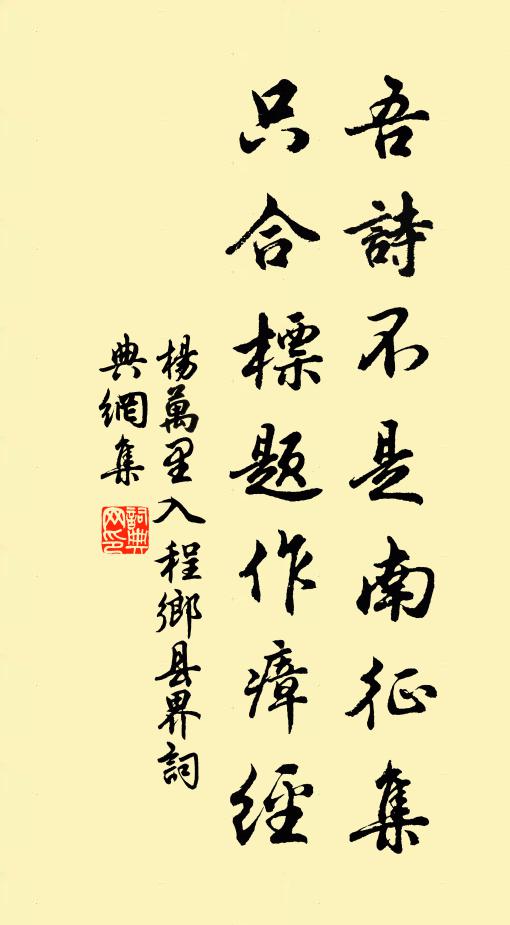 吾詩不是南征集
只合標題作瘴經
楊萬里入程鄉县界詞
典網集
詞典网印